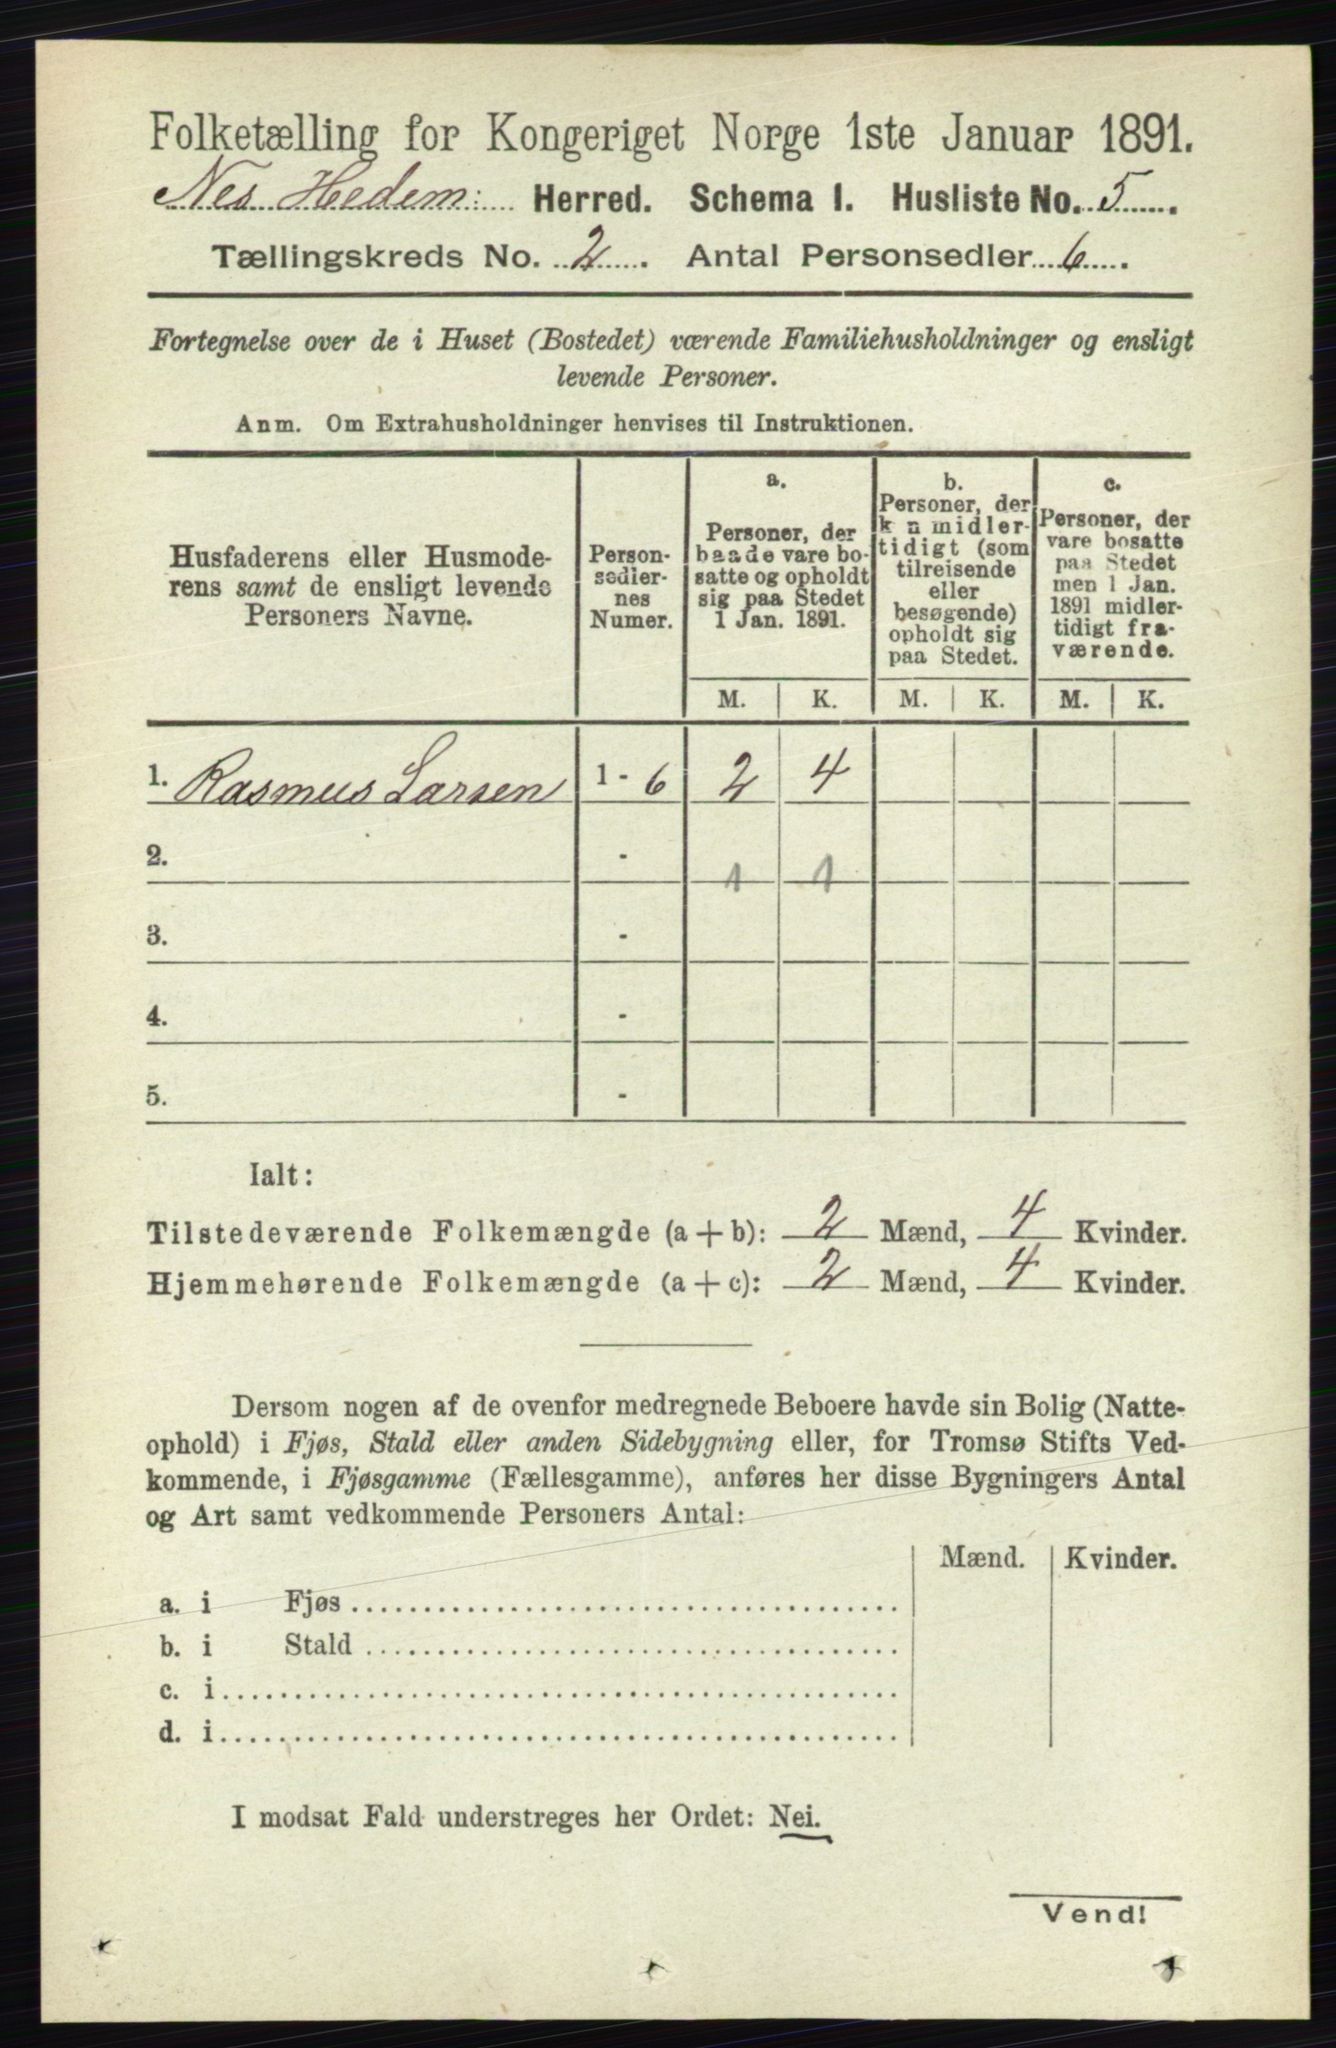 Folketælling for Kongeriget Norge 1ste Januar 1891.
Nes Hedem: Herred. Schema I. Husliste No. 5.
Tællingskreds No. 2. Antal Personsedler 6.
Fortegnelse over de i Huset (Bostedet) værende Familiehusholdninger og ensligt
levende Personer.
Anm. Om Extrahusholdninger henvises til Instruktionen.
Husfaderens eller Husmode-
rens samt de ensligt levende
Personers Navne.
Person-
sedler-
nes
Numer.
a.
Personer, der
baade vare bo-
satte og opholdt
sig paa Stedet
1 Jan. 1891.
b.
Personer, der
k n midler-
tidigt (som
tilreisende
eller
besøgende)
opholdt sig
paa Stedet.
c.
Personer, der
vare bosatte
paa Stedet
men 1 Jan.
1891 midler-
tidigt fra-
værende.
M. K. M. K. M. K.
1. Rasmus Larsen 1 - 6 2 4
2. - 1 1
3. -
4. -
5. -
Ialt:
Tilstedeværende Folkemængde (a + b): 2 Mænd, 4 Kvinder.
Hjemmehørende Folkemængde (a + c): 2 Mænd, 4 Kvinder.
Dersom nogen af de ovenfor medregnede Beboere havde sin Bolig (Natte-
ophold) i Fjøs, Stald eller anden Sidebygning eller, for Tromsø Stifts Ved-
kommende, i Fjøsgamme (Fællesgamme), anføres her disse Bygningers Antal
og Art samt vedkommende Personers Antal:
Mænd. Kvinder.
a. i Fjøs
b. i Stald
c. i
d. i
I modsat Fald understreges her Ordet: Nei.
Vend!